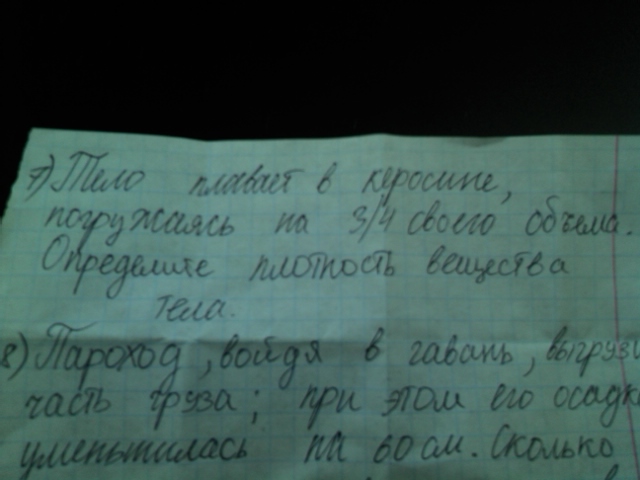 7) Тело плавает в керосине,
погружаясь на 3/4 своего объема.
Определите плотность вещества
тела.
8) Пароход, войдя в гавань, выгрузи
часть груза; при этом его осадк
уменьшилась на 60 см. Сколько